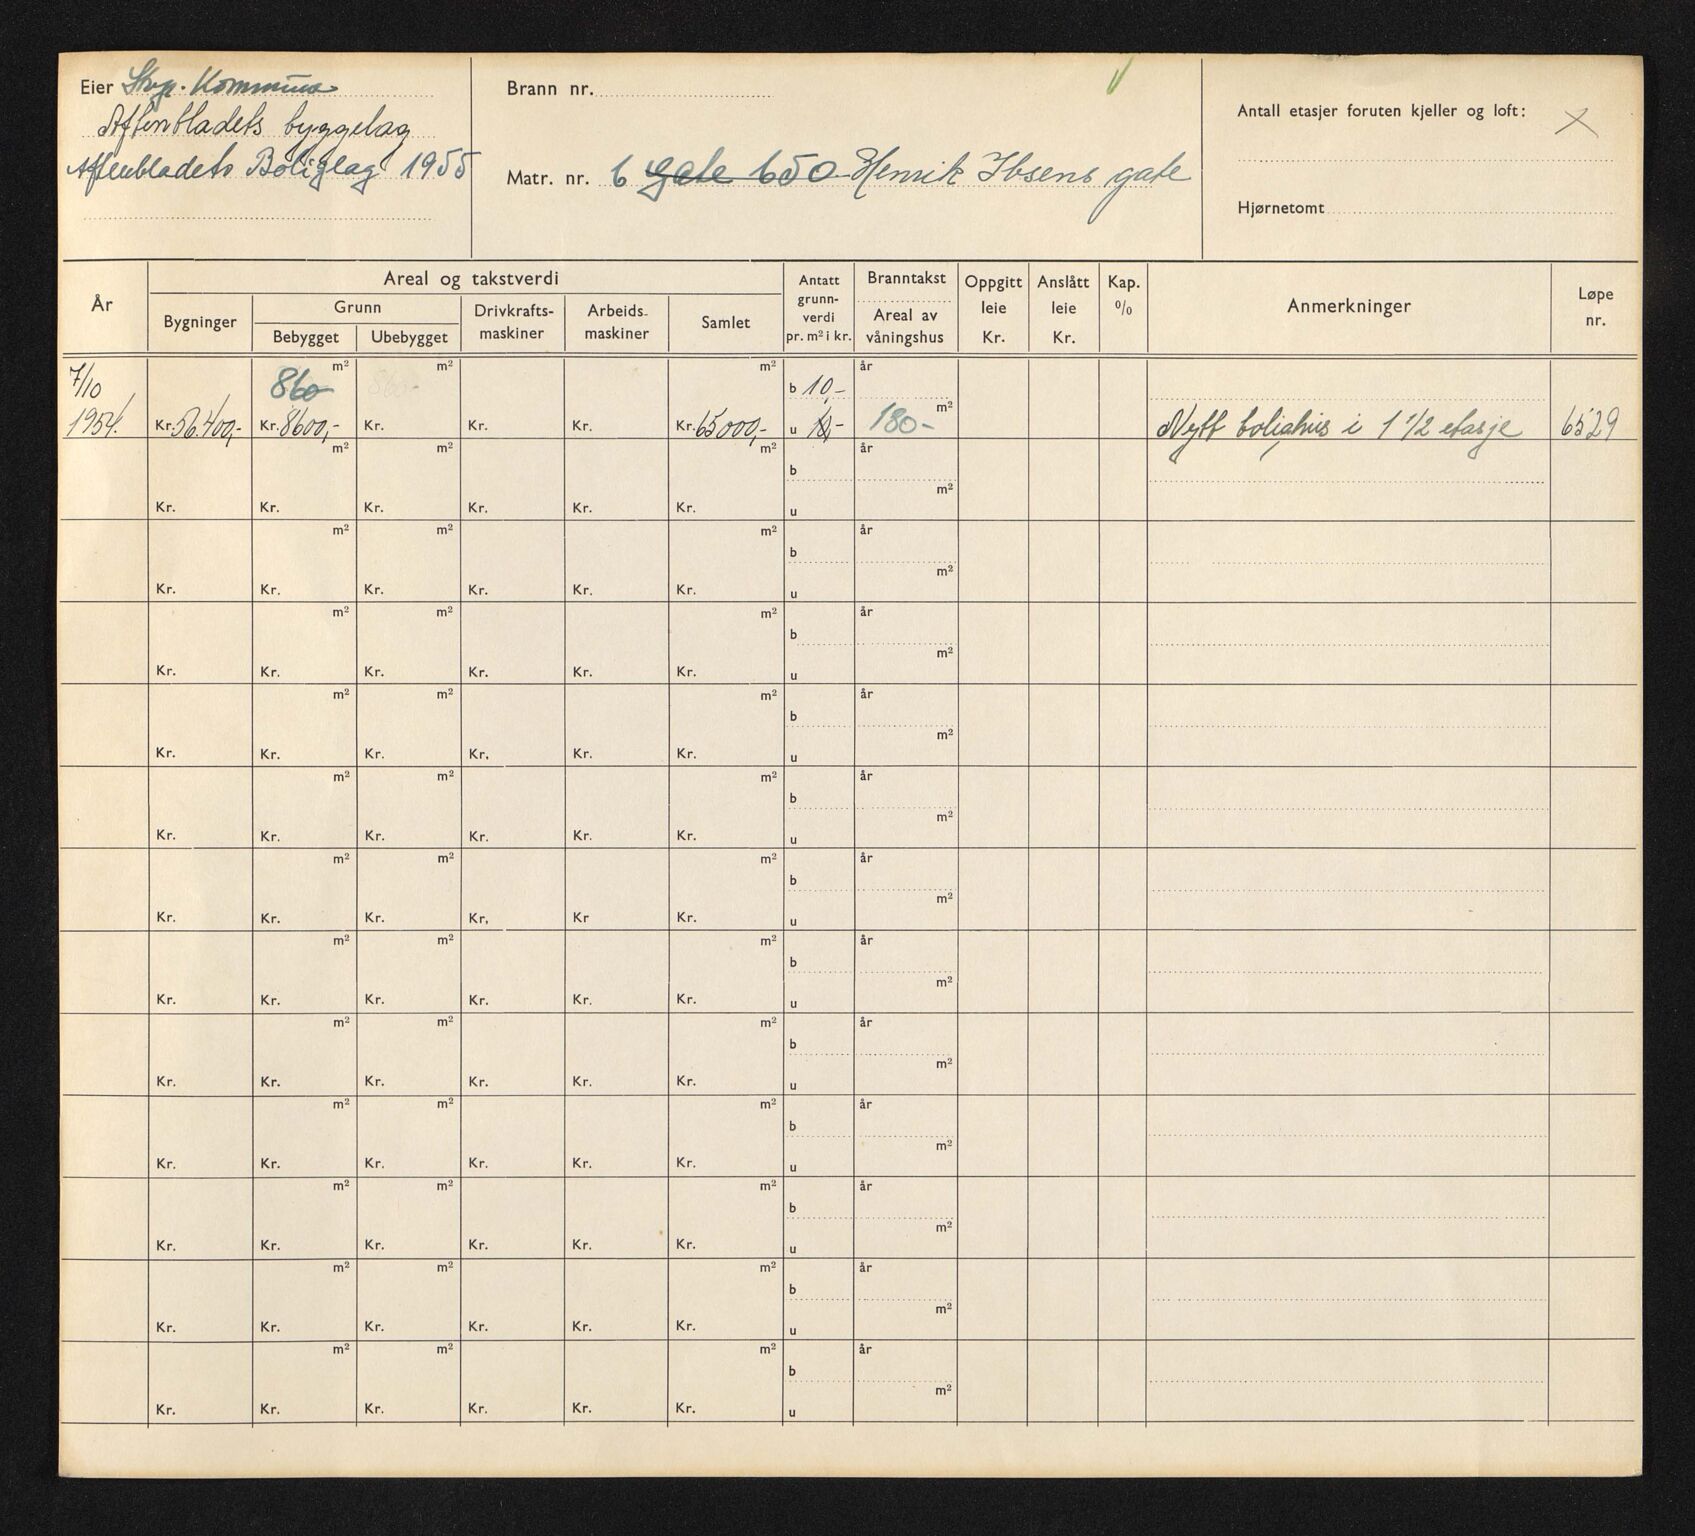 Eier Stvg. Kommune
Aftenbladets byggelag
Aftenbladets Boliglag 1955
Brann nr.
Matr. nr. 6 gate 650 Henrik Ibsens gate
Antall etasjer foruten kjeller og loft: X
Hjørnetomt
År
Areal og takstverdi
Bygninger
Grunn
Bebygget
Ubebygget
Drivkrafts-
maskiner
Arbeids-
maskiner
Samlet
Antatt
grunn-
verdi
pr. m² i kr.
Branntakst
Areal av
våningshus
Oppgitt
leie
Kr.
Anslått
leie
Kr.
Kap.
%
Anmerkninger
Løpe
nr.
7/10 m² 860 m² m² b 10,- år
1954. Kr. 56.400,- Kr. 8600,- Kr. Kr. Kr. Kr. 65000,- u 10,- 180- m² Nytt bolighus i 1 1/2 etasje 6529
m² m² m² b år
Kr. Kr. Kr. Kr. Kr. Kr. u m²
m² m² m² b år
Kr. Kr. Kr. Kr. Kr. Kr. u m²
m² m² m² b år
Kr. Kr. Kr. Kr. Kr. Kr. u m²
m² m² m² b år
Kr. Kr. Kr. Kr. Kr. Kr. u m²
m² m² m² b år
Kr. Kr. Kr. Kr. Kr. Kr. u m²
m² m² m² b år
Kr. Kr. Kr. Kr, Kr Kr. u m²
m² m² m² b år
Kr. Kr. Kr. Kr. Kr. Kr. u m²
m² m² m² b år
Kr. Kr. Kr. Kr. Kr. Kr. u m²
m² m² m² b år
Kr. Kr. Kr. Kr. Kr. Kr. u m²
m² m² m² b år
Kr. Kr. Kr. Kr. Kr. Kr. u m²
m² m² m² b år
Kr. Kr. Kr. Kr. Kr. Kr. u m²
m² m² m² b år
Kr. Kr. Kr. Kr. Kr. Kr. u m²